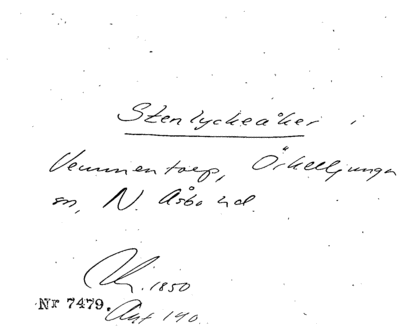 Stenlyckeåker i
Vemmentorp, Örkelljunga
sn, N. Åsbo hd.
1850
Nr 7479. Akt 190